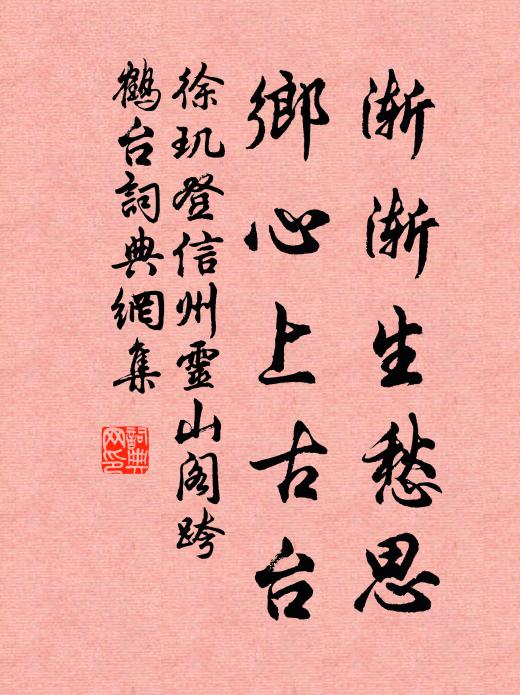 渐渐生愁思
鄉心上古台
徐玑登信州靈山阁跨
鶴台詞典網集
詞典
网印